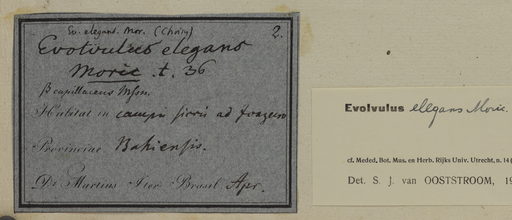 Ev. elegans. Mor. (Choisy)
2.
Evolvulus elegans
Moric. t. 36
β capillaceus Mssn.
Habitat in campis siccis ad
Provinciae Bahiensis.
Dr. Martius Iter Brasil. Apr.
Evolvulus elegans Moric.
cf. Meded. Bot. Mus. en Herb. Rijks Univ. Utrecht, n. 14
Det. S. J. van OOSTSTROOM, 19